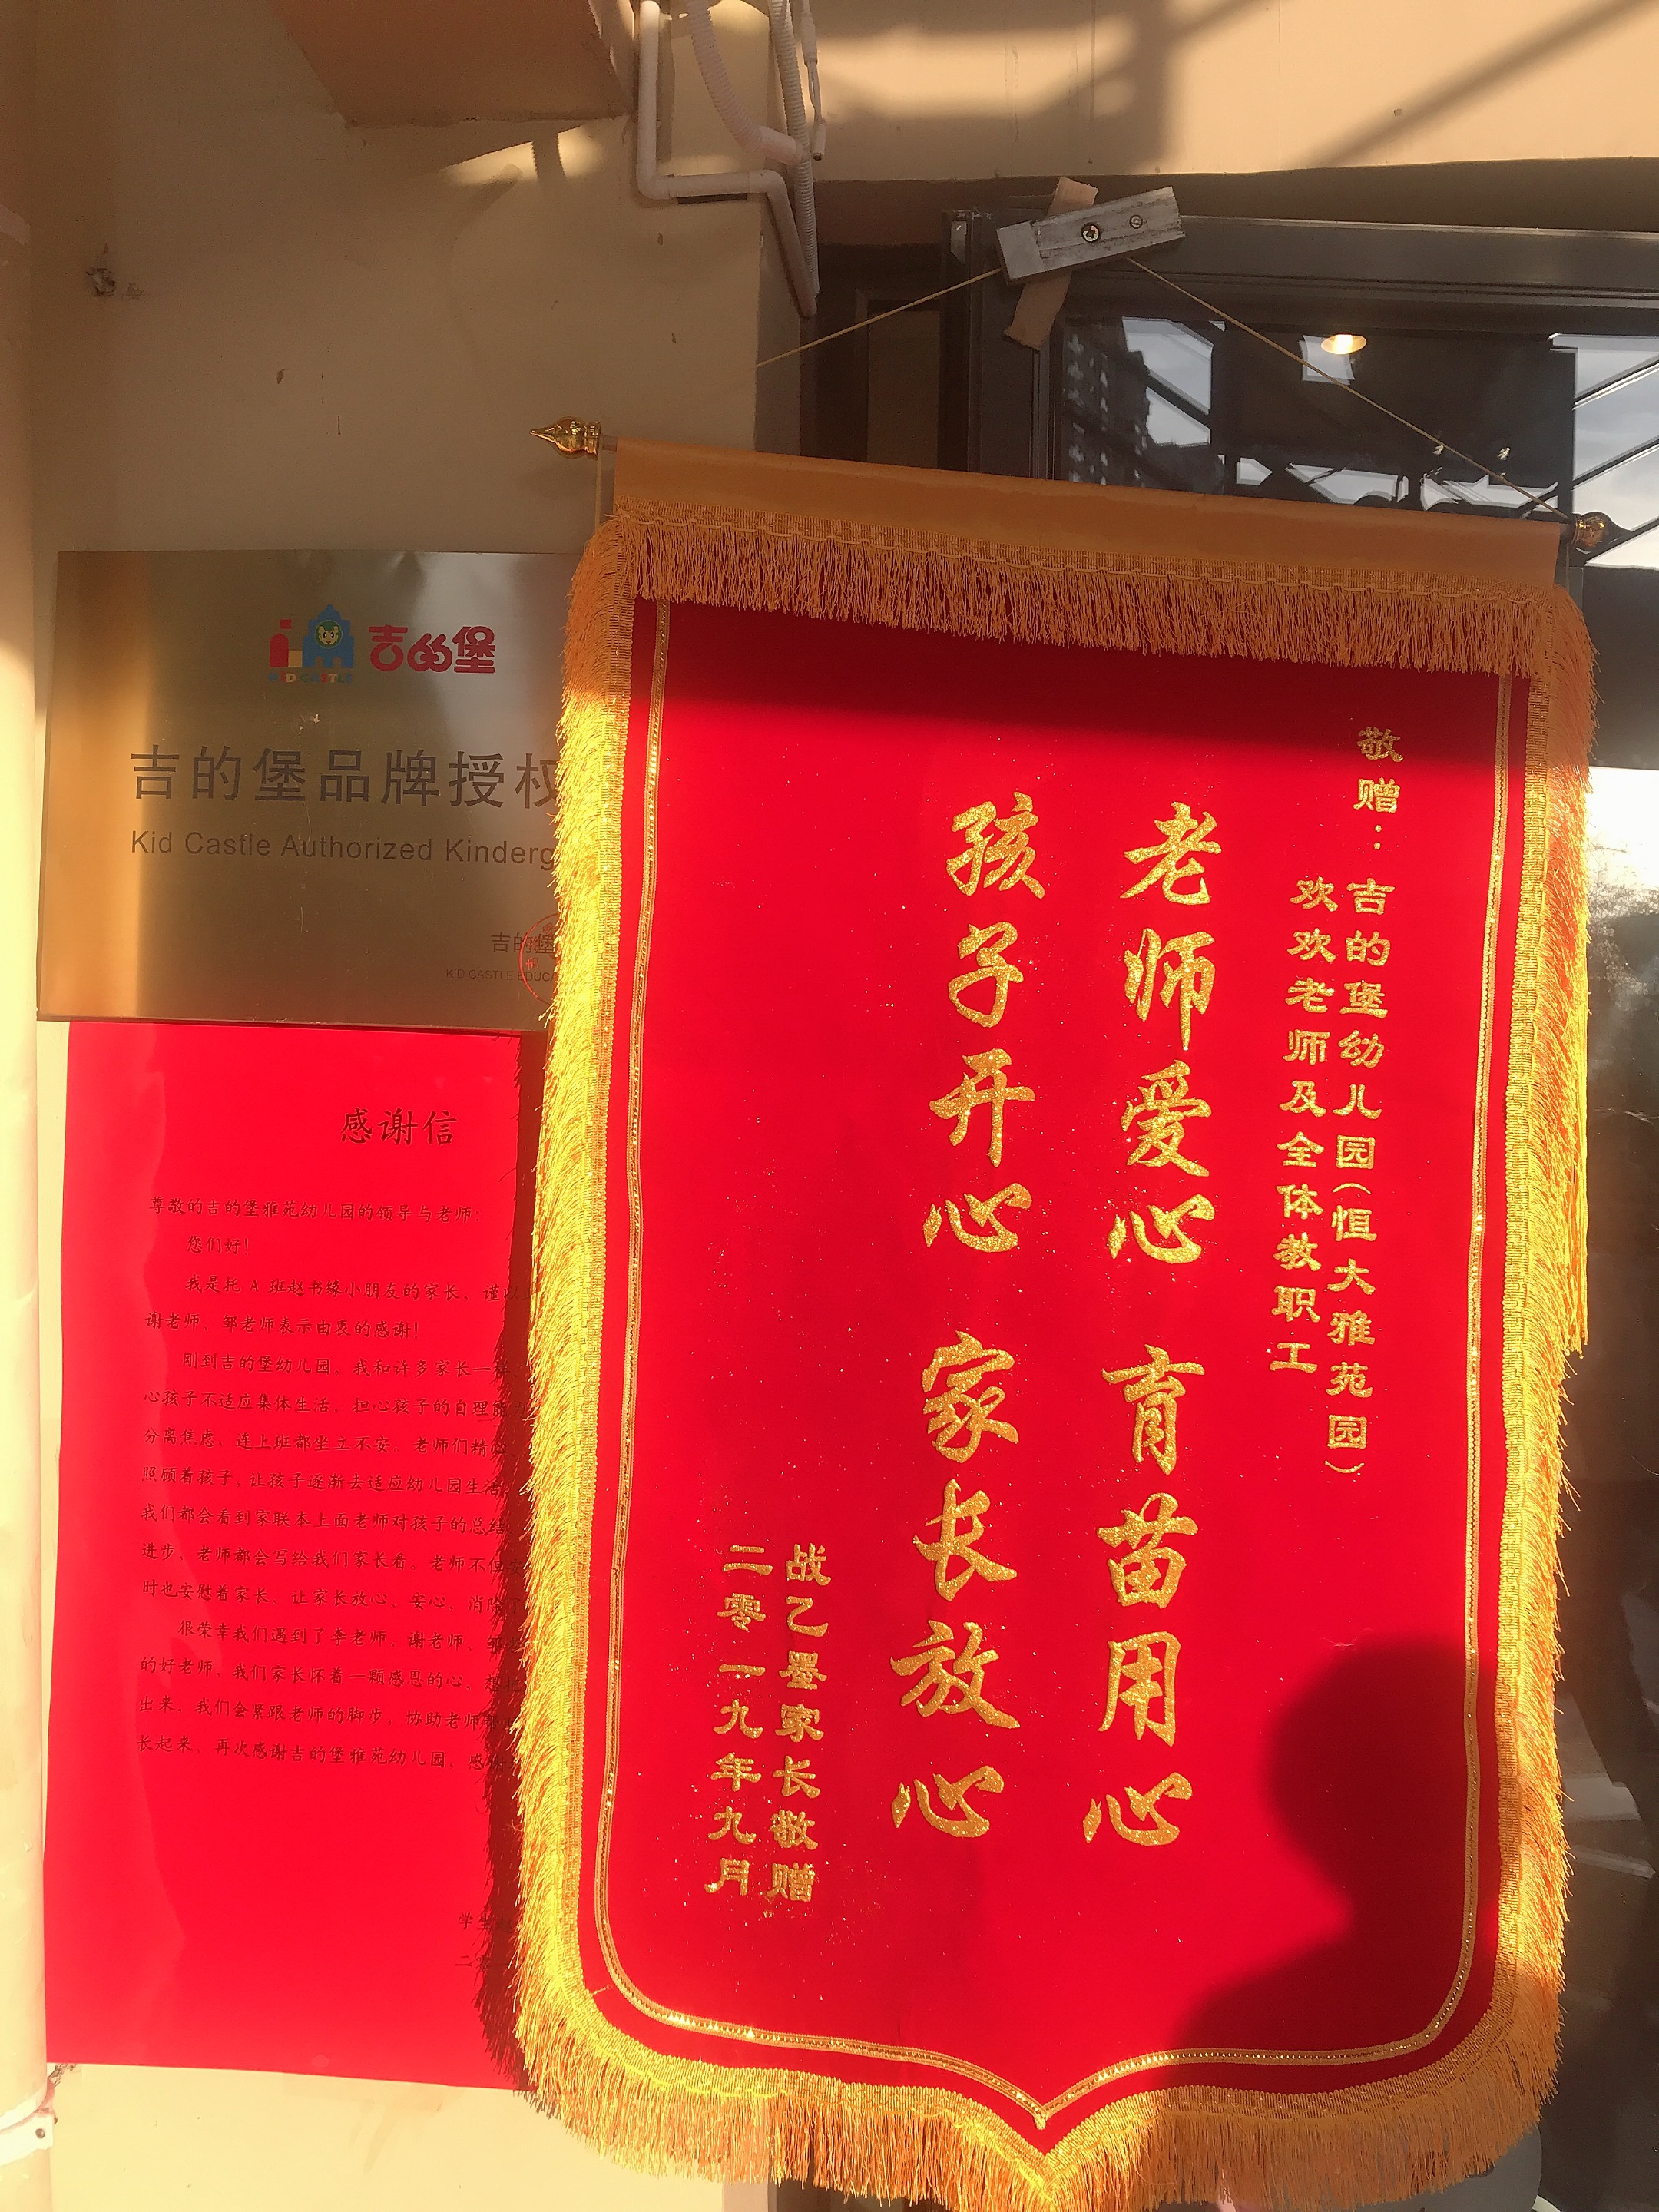 KID CASTLE
吉的堡
吉的堡品牌授权
Kid Castle Authorized Kinderg
吉的堡
KID CASTLE EDUCA
感谢信
尊敬的吉的堡雅苑幼儿园的领导与老师：
您们好！
我是托 A 班赵书缘小朋友的家长，谨以
谢老师、邹老师表示由衷的感谢！
刚到吉的堡幼儿园，我和许多家长一样
心孩子不适应集体生活，担心孩子的自理能力
分离焦虑，连上班都坐立不安。老师们精心
照顾着孩子，让孩子逐渐去适应幼儿园生活
我们都会看到家联本上面老师对孩子的总结
进步，老师都会写给我们家长看。老师不但安
时也安慰着家长，让家长放心、安心，消除了
很荣幸我们遇到了李老师、谢老师、邹
的好老师，我们家长怀着一颗感恩的心，想把
出来，我们会紧跟老师的脚步，协助老师
长起来，再次感谢吉的堡雅苑幼儿园，感谢
学生
二
敬赠：吉的堡幼儿园（恒大雅苑园）
欢欢老师及全体教职工
老师爱心 育苗用心
孩子开心 家长放心
战乙墨家长敬赠
二零一九年九月